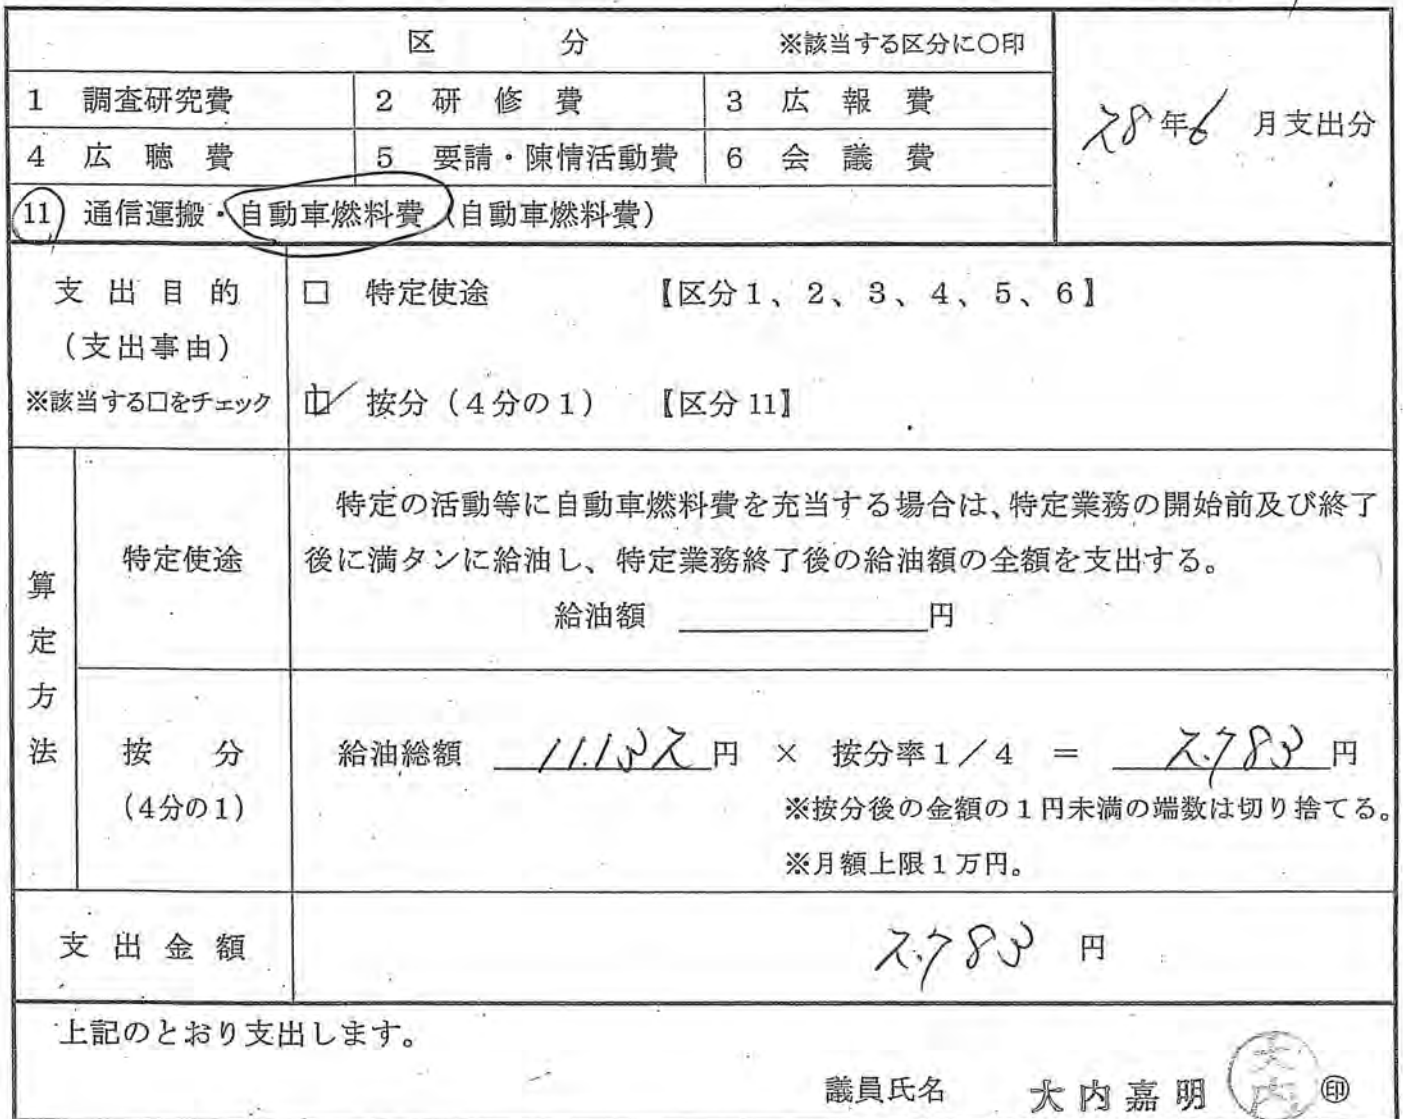 区　分　※該当する区分に〇印
1 調査研究費　2 研修費　3 広報費
28年6月支出分
4 広聴費　5 要請・陳情活動費　6 会議費
11 通信運搬・自動車燃料費（自動車燃料費）
支出目的　□ 特定使途　【区分1、2、3、4、5、6】
（支出事由）
※該当する口をチェック　☑ 按分（4分の1）　【区分11】
算定方法
特定使途
特定の活動等に自動車燃料費を充当する場合は、特定業務の開始前及び終了
後に満タンに給油し、特定業務終了後の給油額の全額を支出する。
給油額　円
按分　給油総額　11.132円 × 按分率1／4 ＝ 2.783円
（4分の1）　※按分後の金額の1円未満の端数は切り捨てる。
※月額上限1万円。
支出金額　2.783 円
上記のとおり支出します。
議員氏名　大内嘉明　大内　㊞